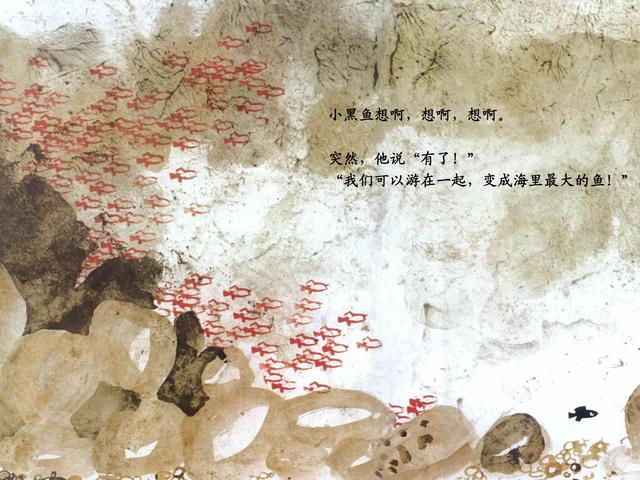 小黑鱼想啊，想啊，想啊。
突然，他说“有了！”
“我们可以游在一起，变成海里最大的鱼！”